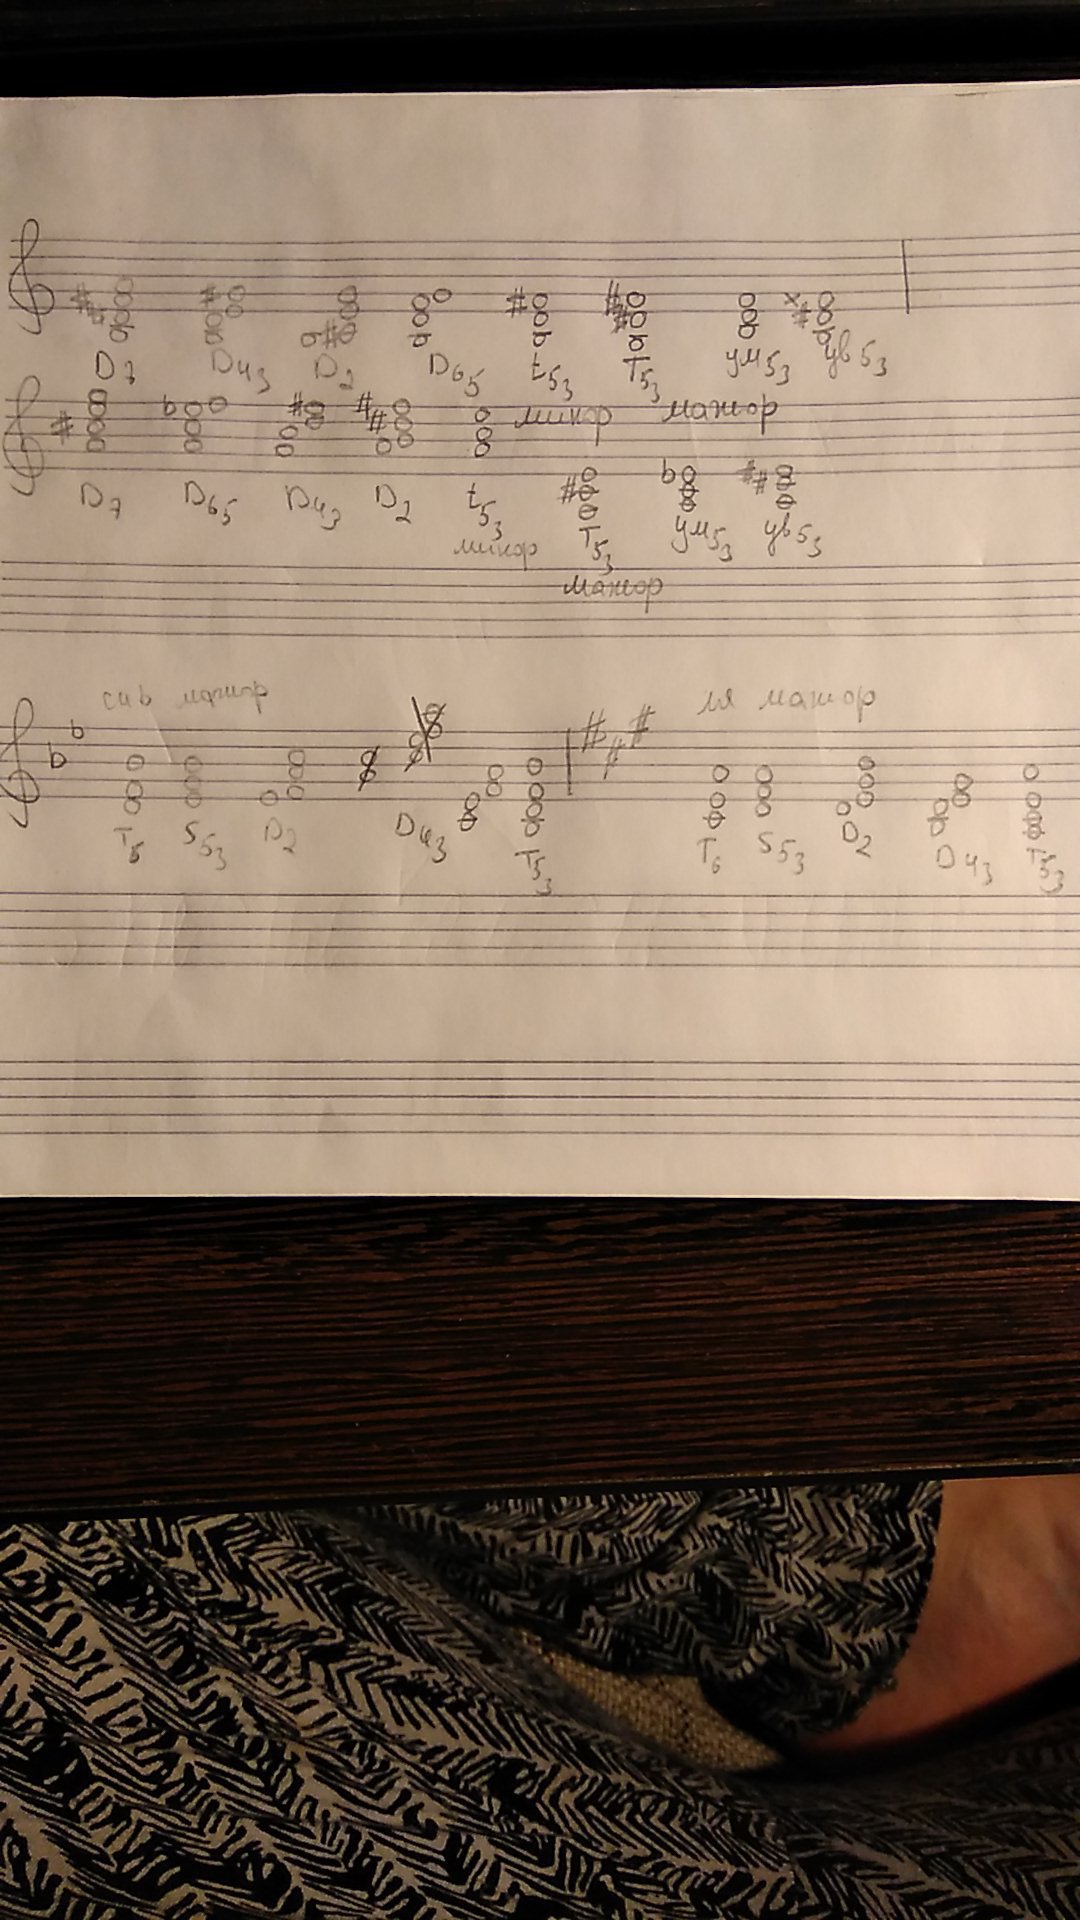 D7 D43 D2 D65 t53 T53 ум53 ув53
минор мажор
D7 D65 D43 D2 t53 T53 ум53 ув53
минор
мажор
сиb мажор ля мажор
T6 S53 D2 D43 T53 T6 S53 D2 D43 T53